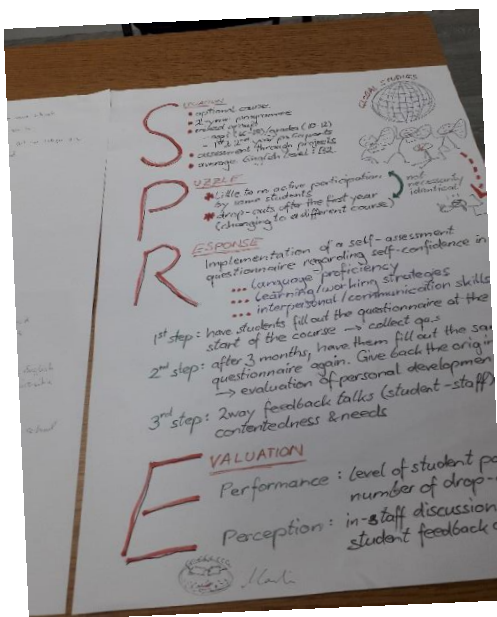 GLOBAL STUDIES
SITUATION
• optional course
• 2-year programme
• mixed group:
- 1st & 2nd year participants
• assessment through projects
• average English level: B2
PUZZLE
* little to no active participation
by some students
* drop-outs after the first year
(changing to a different course)
not
necessarily
identical!
RESPONSE
Implementation of a self-assessment
questionnaire regarding self-confidence in
... language proficiency
... learning/working strategies
... interpersonal/communication skills
1st step: have students fill out the questionnaire at the
start of the course → collect q.s
2nd step: after 3 months, have them fill out the
questionnaire again. Give back the
→ evaluation of personal
3rd step: 2way feedback talks (student-staff)
contentedness & needs
EVALUATION
Performance: level of student
number of
Perception: in-staff
student feedback